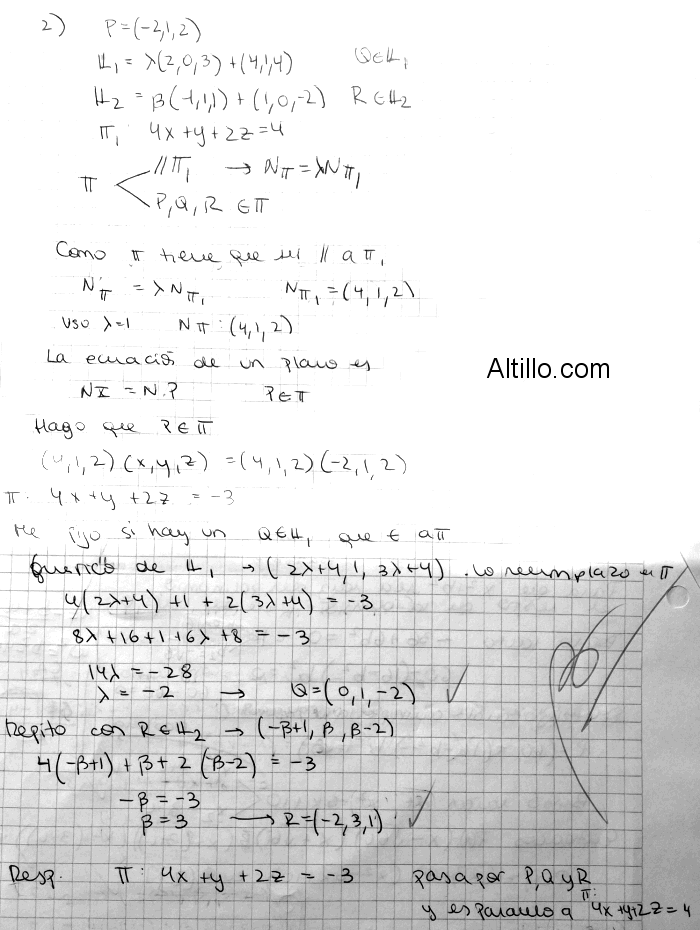 2) P=(-2,1,2)
L₁ = λ(2,0,3) + (4,1,4) Q∈L₁
L₂ = β(-1,1,1) + (1,0,-2) R∈L₂
π₁ 4x+y+2z=4
π // π₁ → Nπ = λNπ₁
P, Q, R ∈ π
Como π tiene que ser // a π₁
Nπ = λNπ₁ Nπ₁ = (4,1,2)
uso λ=1 Nπ: (4,1,2)
La ecuación de un plano es
NX = N.P P∈π
Hago que P∈π
(4,1,2)(x,y,z) = (4,1,2)(-2,1,2)
π: 4x+y+2z = -3
Me fijo si hay un Q∈L₁ que ∈ a π
de L₁ → (2λ+4, 1, 3λ+4). lo reemplazo en π
4(2λ+4) + 1 + 2(3λ+4) = -3
8λ+16+1+6λ+8 = -3
14λ = -28
λ = -2 → Q=(0,1,-2) ✓
Repito con R∈L₂ → (-β+1, β, β-2)
4(-β+1) + β + 2(β-2) = -3
-β = -3
β = 3 → R=(-2,3,1) ✓
Resp. π: 4x+y+2z = -3 pasa por P, Q y R
y es paralelo a π: 4x+y+2z=4
Altillo.com